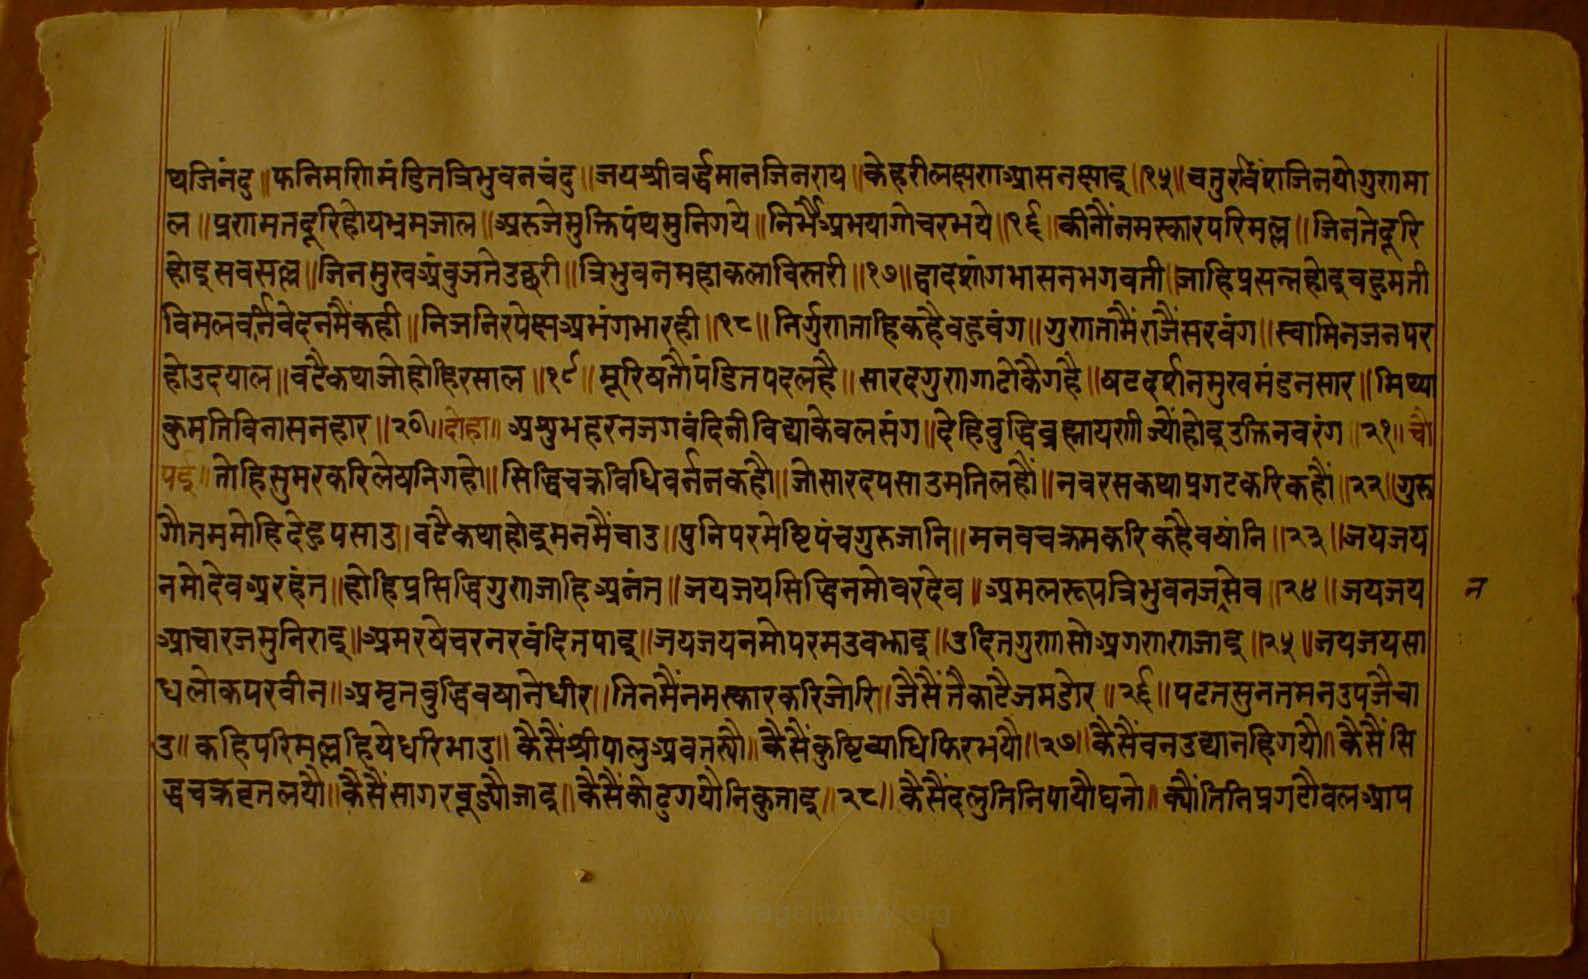 थजिनंदु॥फनिमणिमंडितत्रिभुवनचंदु॥जयश्रीवर्द्धमानजिनराय॥केहरीलक्षणआसनक्षाइ॥१५॥चतुरविंशजिनयोगुणमा
ल॥प्रणमतदूरिहोयभ्रमजाल॥अरुजेमुक्तिपंथमुनिगये॥निर्भैअभयागोचरभये॥१६॥कीनौंनमस्कारपरिमल्ल॥जिनतेदूरि
होइसवसल्ल॥जिनमुखअंवुजतेउछरी॥त्रिभुवनमहाकलाविस्तरी॥१७॥द्वादशांगभासनभगवती॥जाहिप्रसन्नहोइवहुमती
विमलवर्नवेदनमैंकही॥निजनिरपेक्षअभंगभारही॥१८॥निर्गुणताहिकहैवहुवंग॥गुणतामैंराजैंसरवंग॥स्वामिनजनपर
होउदयाल॥वटैकथाजोहोहिरसाल॥१९॥मूरिषतौपंडितपदलहै॥सारदगुणगाटोकैगहै॥षटदर्शनमुखमंडनसार॥मिथ्या
कुमतिविनासनहार॥२०॥दोहा॥अशुभहरनजगवंदिनीविद्याकेवलसंग॥देहिवुद्धिव्रह्मायणीज्यौंहोइउक्तिनवरंग॥२१॥चौ
पई॥तोहिसुमरकरिलेषनिगहो॥सिद्धिचक्रविधिवर्ननकहौ॥जोसारदपसाउमतिलहौं॥नवरसकथाप्रगटकरिकहौं॥२२॥गुरु
गौतममोहिदेहुपसाउ॥वटैकथाहोइमनमैंचाउ॥पुनिपरमेष्टिपंचगुरुजानि॥मनवचक्रमकरिकहैवषांनि॥२३॥जयजय
नमोदेवअरहंत॥होहिप्रसिद्धिगुणजाहिअनंत॥जयजयसिद्धिनमोवरदेव॥अमलरूपत्रिभुवनजसेव॥२४॥जयजय न
आचारजमुनिराइ॥अमरषेचरनरवंदितपाइ॥जयजयनमोपरमउवझाइ॥उदितगुणसोअगणणजाइ॥२५॥जयजयसा
धलोकपरवीन॥अमृतवुद्धिवषानेधीर॥तिनमैंनमस्कारकरिजोरि॥जैसैंतैकाटैजमडोर॥२६॥पटतसुनतमनउपजैचा
उ॥कहिपरिमल्लहियेधरिभाउ॥कैसैंश्रीपालुअवतर्यौ॥कैसैंकुष्टिव्याधिफिरभयौ॥२७॥कैसैंवनउद्यानहिगयौ॥कैसैंसि
द्धचक्रवृतलयौ॥कैसैंसागरवूड्यौजाइ॥कैसैंकोटुगयौनिकुताइ॥२८॥कैसैंदलुतिनिपायौघनो॥क्यौंतिनिप्रगटौवलआप